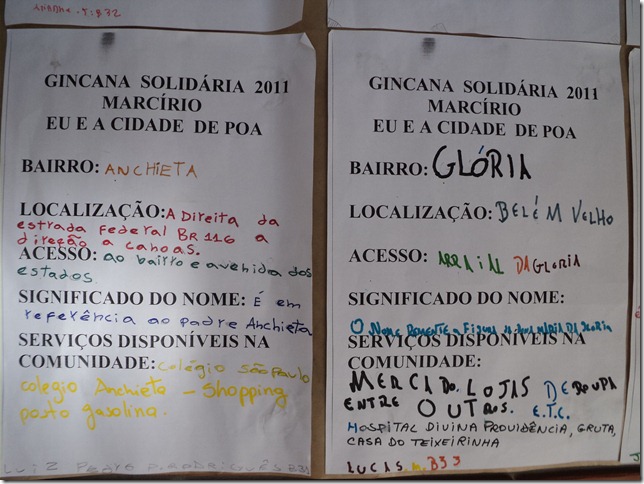 GINCANA SOLIDÁRIA 2011
MARCÍRIO
EU E A CIDADE DE POA
BAIRRO: ANCHIETA
LOCALIZAÇÃO: A Direita da
estrada Federal BR 116 a
direção a canoas.
ACESSO: ao bairro e avenida dos
estados
SIGNIFICADO DO NOME: É em
referência ao padre Anchieta
SERVIÇOS DISPONÍVEIS NA
COMUNIDADE: Colégio São Paulo
colegio Anchieta - Shopping
posto gasolina.
LUIZ PEDRO
GINCANA SOLIDÁRIA 2011
MARCÍRIO
EU E A CIDADE DE POA
BAIRRO: GLÓRIA
LOCALIZAÇÃO: BELÉM VELHO
ACESSO: ARRAIAL DA GLORIA
SIGNIFICADO DO NOME:
O NOME REMENTE A FIGURA DE DONA MARIA DA GLORIA
SERVIÇOS DISPONÍVEIS NA
COMUNIDADE:
MERCADO. LOJAS DE ROUPA
ENTRE OUTROS. E.T.C.
HOSPITAL DIVINA PROVIDÊNCIA, GRUTA,
CASA DO TEIXEIRINHA
LUCAS. M. B33